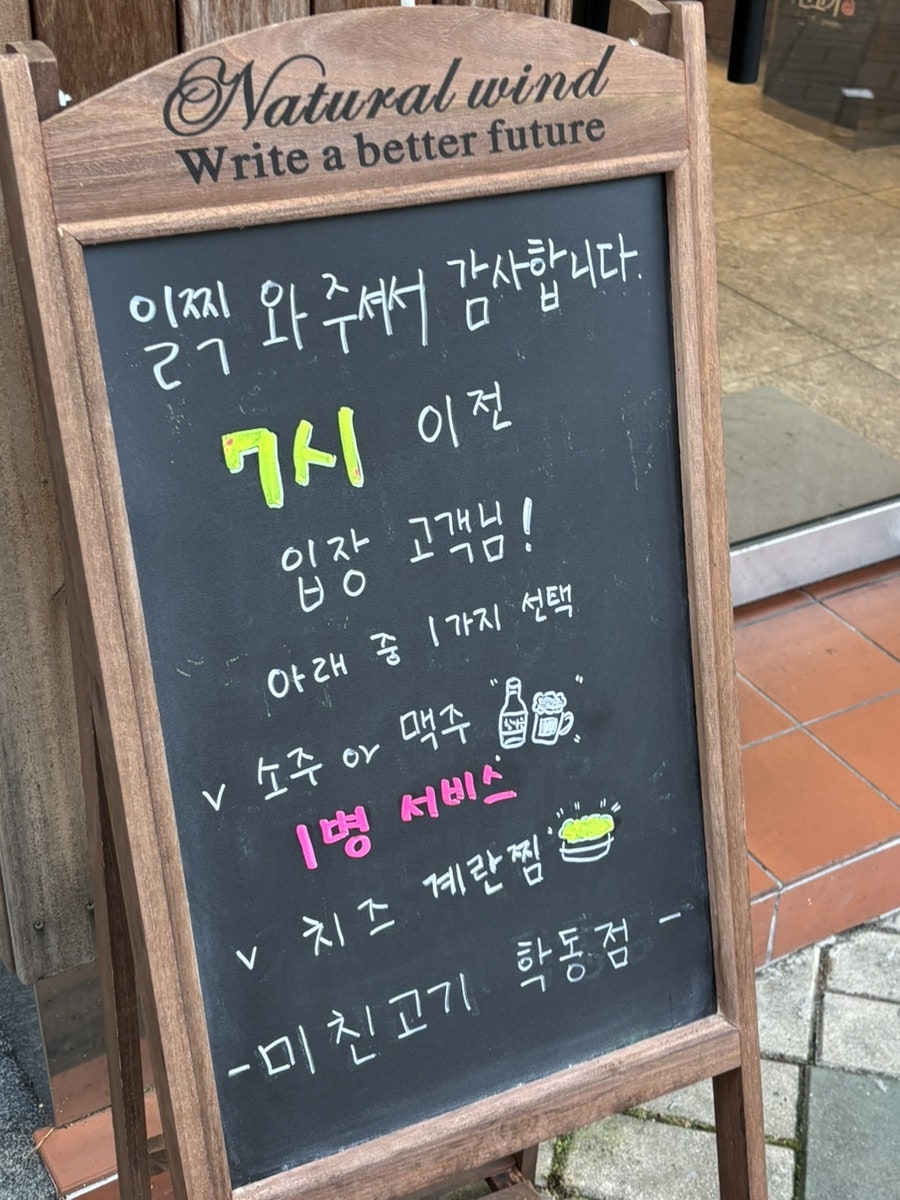 Natural wind
Write a better future
일찍 와 주셔서 감사합니다.
7시 이전
입장 고객님!
아래 중 1가지 선택
v 소주 or 맥주
1병 서비스
v 치즈 계란찜
-미친고기 학동점-